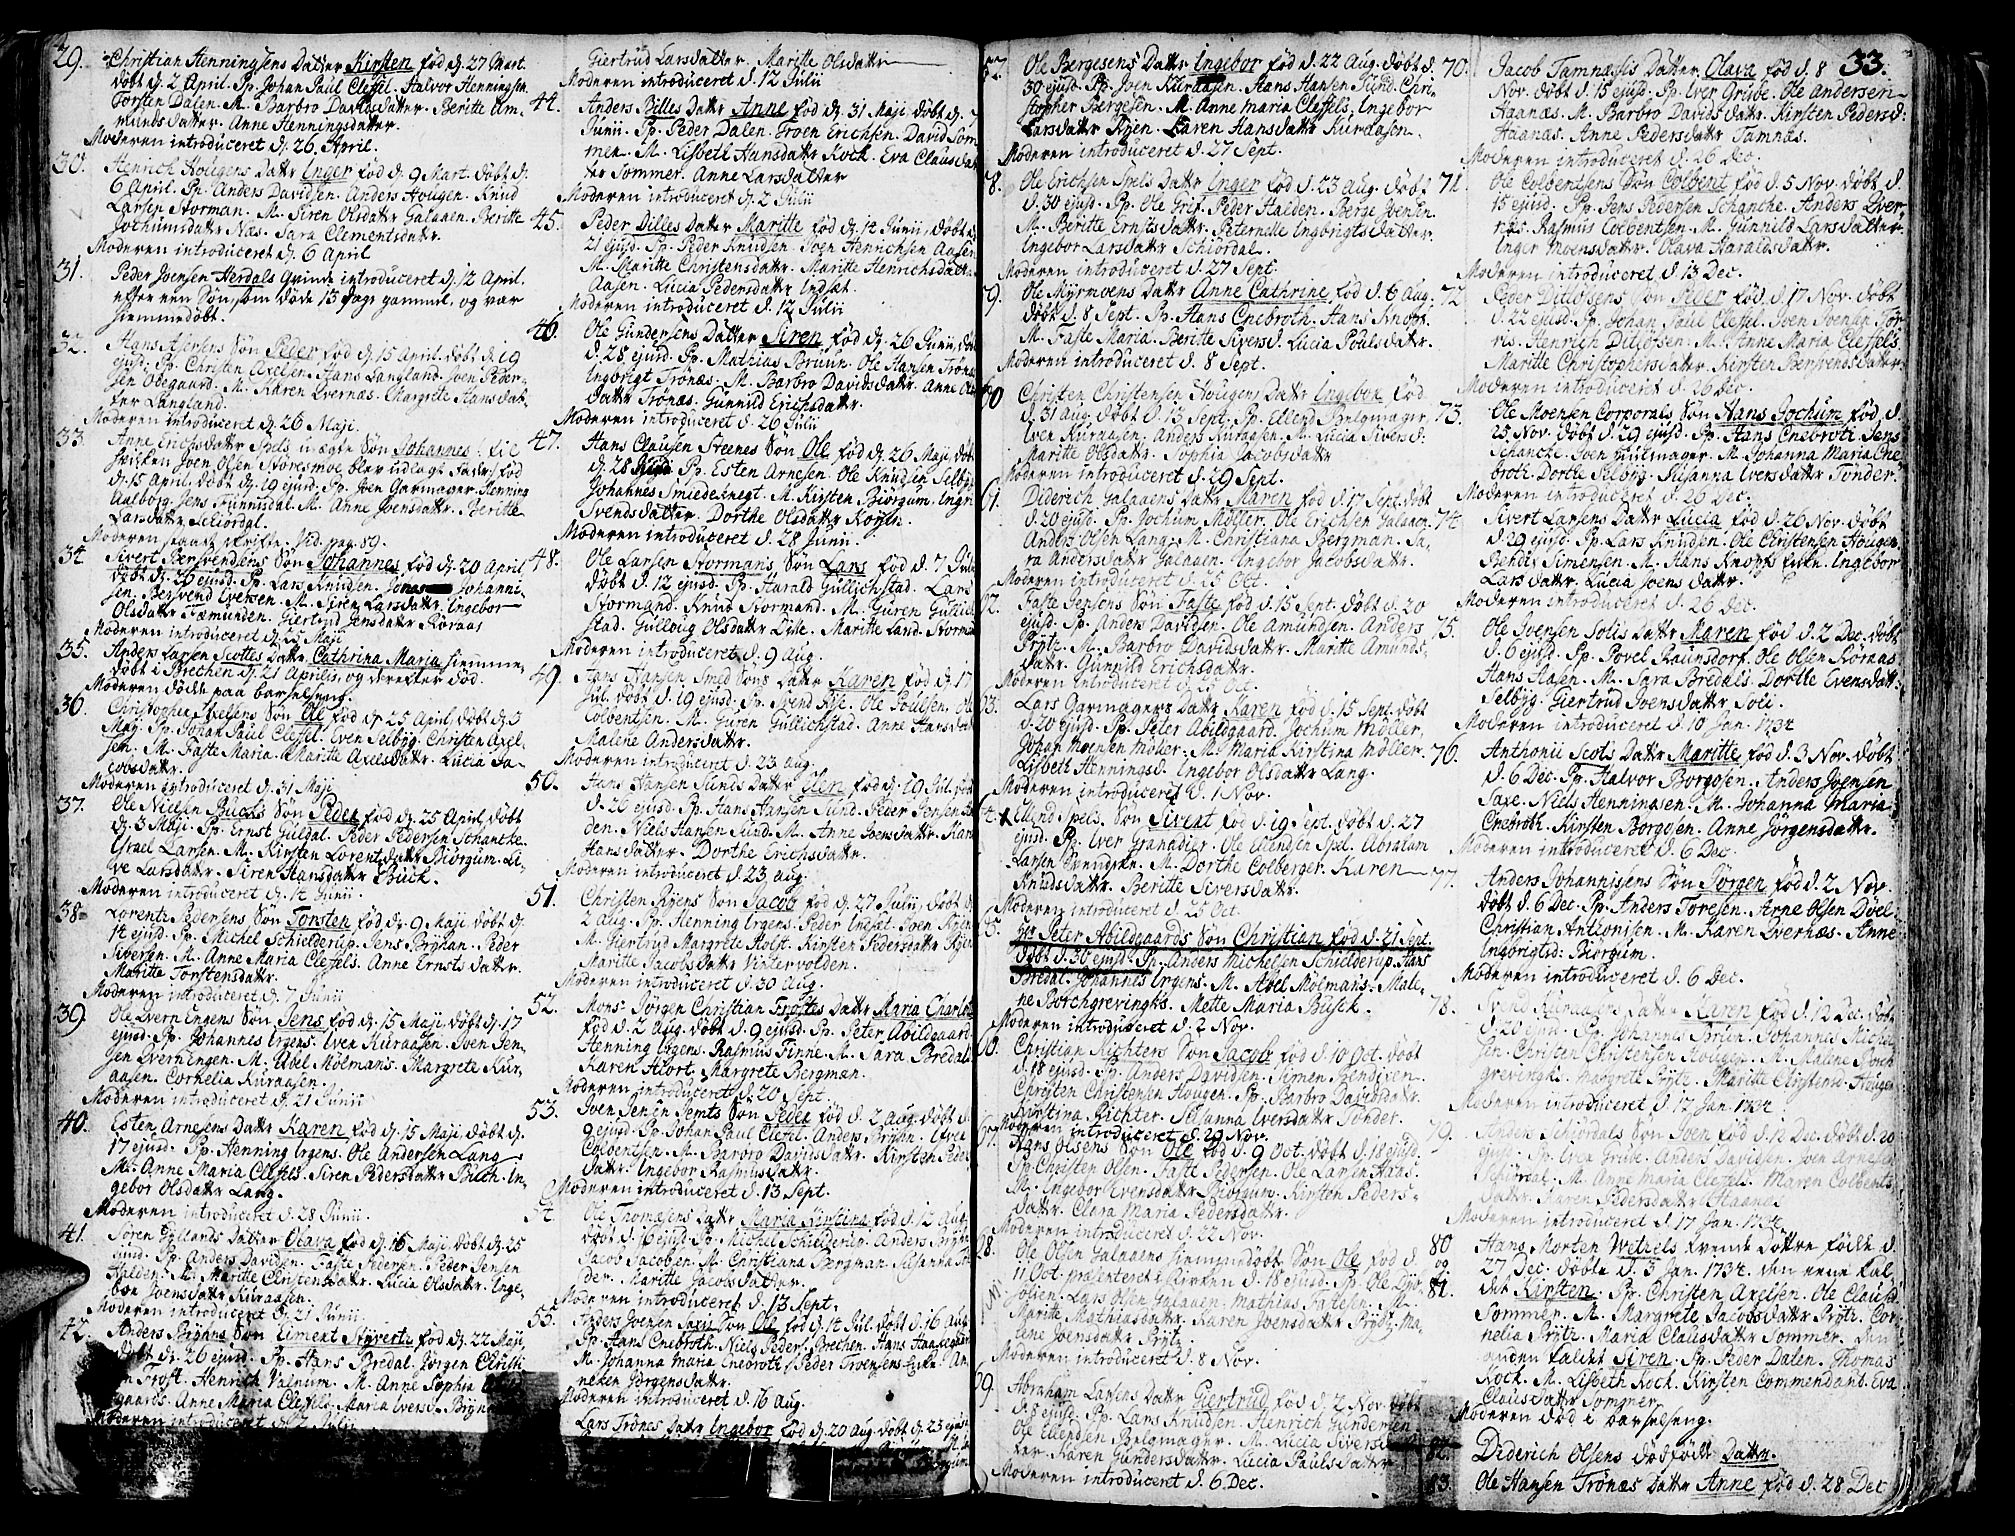 29. Christian Henningsens Datter Kirsten fød d. 27 Mart.
døbt d. 2 April. Pp. Johan Paul Cleffel. Halvor Henningsen
Torsten Dalen. M. Barbro Davidsdatter. Beritte Am-
munds datter. Anne Henningsdatter.
Moderen introduceret d. 26 April.
30. Henrich Hougens Dattr Inger fød d. 9 Mart. døbt d.
6 April. Pp. Anders Davidsen. Anders Hougen. Knud
Larsen Storman. M. Siren Olsdattr Galaaen. Beritte
Jochumsdattr Næs. Sara Clementsdattr.
Moderen introduceret d. 6 April
31. Peder Joensen Herdals Qvinde introduceret d. 12 April.
efter een Søn, som døde 13 dage gammel, og var
hiemmedøbt.
32. Hans Søn Peder fød d. 15 April. døbt d. 19
ejusd. Pp. Christen Axelsen. Hans Langland. Joen Peder-
sen Odegaard. M. Karen Qvernæs. Margrete Hansdat-
ter Langland.
Moderen introduceret d. 26 Maji.
33. Anne Erichsdattr Spels uægte Søn Johannes, til
hvilken Joen Olsen Storesmoe blev udlagt Fader, fød
d. 15 April. døbt d. 19 ejusd. Pp. Joen Garmager. Henning
Aalborg. Jens Funnisdal. M. Anne Joensdattr. Beritte
Larsdattr Schiordal.
Moderen staaet skrifte. Vid. pag. 89.
34. Sivert BerSvendsens Søn Johannes fød d. 20 April
døbt d. 26 ejusd. Pp. Lars Knudsen. Johanni-
sen. BerSvend Eversen. M. Siren Larsdattr. Ingebor
Olsdattr Fæmunden. Giertrud Jensdattr Røraas
Moderen introduceret d. 25 Maji
35. Anders Larsen Scottes Dattr. Cathrina Maria hiemme-
døbt i Brechen d. 21 Aprilis, og derefter død.
Moderen døde paa barselseng.
36. Christopher Axelsens Søn Ole fød d. 25 April, døbt d. 3
Maj. Pp. Johan Paul Cleffel. Even Selbyg. Christen Axel-
sen. M. Faste Maria. Maritte Axelsdattr. Lucia Ja-
cobsdattr.
Moderen introduceret d. 31 Maji
37. Ole Nielsen Buchs Søn Peder fød d. 25 April, døbt
d. 3 Maji. Pp. Ernst Guldal. Peder Pedersen Schantke.
Israel Larsen. M. Kirsten Lorentzdattr Biorgum. Li-
ve Larsdattr. Siren Hansdattr Buck.
Moderen introduceret d. 14 Junii.
38. Lorentz Pedersens Søn Torsten fød d. 9 Maji døbt d.
14 ejusd. Pp. Michel Schielderup. Jens Bryhan. Peder
Siversen. M. Anne Maria Cleffels. Anne Ernsts datter.
Maritte Torstensdattr.
Moderen introduceret d. 7 Junii
39. Ole Qvern Engens Søn Jens fød d. 15 Maji døbt d. 17
ejusd. Pp. Johannes Irgens. Iver Kuraasen. Joen Jen-
sen Qvern Engen. M. Abel Mölmans. Margrete Kur-
aasen. Cornelia Kuraasen.
Moderen introduceret d. 21 Junii
40. Esten Arnesens Dattr Karen fød d. 15 Maji. døbt d.
17 ejusd. Pp. Henning Irgens. Ole Andersen Lang
M. Anne Maria Cleffels. Siren Pedersdattr Buch. In-
gebor Olsdattr Lang.
Moderen introduceret d. 28 Junii.
41. Sören Gyllands Datter Olava fød d. 16 Maji. døbt d. 25
ejusd. Pp. Anders Davidsen. Faste Pedersen. Peder Jensen
Halden. M. Maritte Christensdattr. Lucia Olsdattr. Inge-
bor Joensdattr Kuraasen.
Moderen introduceret d. 21 Junii.
42. Anders Bryhns Søn Climent Sivertz fød d. 22 Maji
døbt d. 26 ejusd. Pp. Hans Bredal. Jørgen Christi
Frost. Henrich Valnum. M. Anne Sophia
gaards. Anne Maria Cleffels. Maria Iversd. Bryhn
Moderen introduceret d. 7 Julii
Giertrud Larsdatter. Maritte Olsdattr
Moderen introduceret d. 12 Julii
44. Anders Billes Dattr Anne fød d. 31 Maji døbt d. 7
Junii. Pp. Peder Dalen. Troen Erichsen. David Som
mer. M. Lisbeth Hansdattr Kock. Eva Clausdat
ter Sommer. Anne Larsdatter
Moderen introduceret d. 2 Julii
45. Peder Dilles Datter Maritte fød d. 14 Junii, døbt d.
21 ejusd. Pp. Peder Knudsen. Joen Henrichsen Aasen
M. Maritte Christensdattr. Maritte Henrichsdattr
Aasen. Lucia Pedersdattr Indset.
Moderen introduceret d. 12 Julii
46. Ole Gundersens Datter Siren fød d. 26 Junii, døbt
d. 28 ejusd. Pp. Mathias Bruun. Ole Hansen Trönæs
Ingbrigt Trönæs. M. Barbro Davidsdattr. Anne Ols
dattr Trönæs. Gunnild Erichsdattr.
Moderen introduceret d. 26 Julii
47. Hans Clausen Steenes Søn Ole fød d. 26 Maji, døbt
d. 28 ejusd Pp. Esten Arnesen. Ole Knudsen Selbyg
Johannes Smiedeknegt. M. Kirsten Biorgum. Ingri
Svendsdatter. Dorthe Olsdattr Koyen.
Moderen introduceret d. 28 Junii.
48. Ole Larsen Stormans Søn Lars fød d. 7 Julii
døbt d. 12 ejusd. Pp. Harald Gullichstad. Lars
Stormand. Knud Stormand. M. Guren Gullich
stad. Gullaug Olsdattr Lille. Maritte Land-Storman
Moderen introduceret d. 9 Aug.
49. Hans Hansen Smed Søns Datter Karen fød d. 17
Jul. døbt d. 19 ejusd. Pp. Svend Rise. Ole Poulsen. Ole
Colbentsen. M. Guren Gullichstad. Anne Hansdattr
Malene Andersdattr.
Moderen introduceret d. 23 Aug.
50. Hans Hansen Sunds Datter Elen fød d. 19 Jul. døbt
d. 26 ejusd. Pp. Hans Hansen Sund. Peder Jensen
den. Niels Hansen Sund. M. Anne Joensdattr. Kari
Hansdatter. Dorthe Erichsdatter.
Moderen introduceret d. 23 aug.
51. Christen Ryens Søn Jacob fød d. 27 Julii, døbt d.
2 aug. Pp. Henning Irgens. Peder Indset. Joen Ryen
M. Giertrud Margrete Holst. Kirsten Pedersdattr Ryen
Maritte Jacobsdattr Vintervolden.
Moderen introduceret d. 30 Aug.
52. Mons. Jörgen Christian Frostes Dattr Maria Charlot
fød d. 2 Aug. døbt d. 9 ejusd. Pp. Peter Abildgaard
Henning Irgens. Rasmus Finne. M. Sara Bredals
Karen Hiort. Margrete Bergman.
Moderen introduceret d. 20 Sept.
53. Joen Jensen Semts Søn Peder fød d. 2 aug. døbt d.
9 ejusd. Pp. Johan Paul Cleffel. Anders Bryhn. Iver
Colbentsen. M. Barbro Davidsdattr. Kirsten Peder
dattr. Ingebor Rasmusdattr.
Moderen introduceret d. 13 Sept.
54. Ole Thomæsens Dattr Maria Kirstina fød d. 12 Aug.
døbt d. 16 ejusd. Pp. Michel Schielderup. Anders Bryhn
Jacob Jacobsen. M. Christiana Bergman. Susanna Tön
der. Maritte Jacobsdatter.
Moderen introduceret d. 13 Sept.
55. Anders Joensen Saxe Søn Ole fød d. 14 Jul. døbt d. 16 aug
Pp. Hans Cnebroth. Niels Peder Brechen. Hans Haasegaard
M. Johanna Maria Cnebroth. Peder Troensens Enke. An-
neken Jorgensdattr.
Moderen introduceret d. 16 Aug.
Lars Trönes Dattr Ingebor fød d. 20 Aug. døbt d. 23 ejusd
33.
57. Ole Bergesens Dattr Ingebor fød d. 22 Aug. døbt d.
30 ejusd. Pp. Joen Kuraasen. Hans Hansen Sund. Chri-
stopher Bergesen. M. Anne Maria Cleffels. Ingebor
Larsdattr Ryen. Karen Hansdattr Kuraasen.
Moderen introduceret d. 27 Sept.
58. Ole Erichsen Spels Dattr Inger fød d. 23 Aug. døbt
d. 30 ejusd. Pp. Ole Grif. Peder Halden. Berge Joensen.
M. Beritte Ernstsdattr. Peternelle Ingbrigtsdatter.
Ingebor Larsdattr Schiordal.
Moderen introduceret d. 27 Sept.
59. Ole Myrmoens Dattr Anne Cathrine fød d. 6 Aug.
døbt d. 8 Sept. Pp. Hans Cnebroth. Hans Knopf.
M. Faste Maria. Beritte Siversd. Lucia Poulsdattr.
Moderen introduceret d. 8 Sept.
60 Christen Christensen Hougens Dattr Ingebor fød
d. 31 Aug. døbt d. 13 Sept. Pp. Ellend Belgmager.
Iver Kuraasen. Anders Kuraasen. M. Lucia Siversd.
Maritte Olsdattr. Sophia Jacobsdattr
Moderen introduceret d. 29 Sept.
61. Diderich Galaaens Dattr Maren fød d. 17 Sept. døbt
d. 20 ejusd. Pp. Jochum Möller. Ole Erichsen Galaaen.
Anders Olsen Lang. M. Christiana Bergman. Sa-
ra Andersdattr Galaaen. Ingebor Jacobsdattr.
Moderen introduceret d. 25 Oct.
62. Faste Jensens Søn Faste fød d. 15 Sept. døbt d. 20
ejusd. Pp. Anders Davidsen. Ole Amundsen. Anders
Prÿtz. M. Barbro Davidsdattr. Maritte Amunds-
dattr. Gunnild Erichsdattr.
Moderen introduceret d. 25 Oct.
63. Lars Garmagers Dattr Karen fød d. 15 Sept. døbt
d. 20 ejusd. Pp. Peter Abildgaard. Jochum Möller.
Johan Moensen Möller. M. Maria Kirstina Möller.
Lisbeth Henningsd. Ingebor Olsdattr Lang.
Moderen introduceret d. 1 Nov.
64. Ellend Spels. Søn Sivert fød d. 19 Sept. døbt d. 27
ejusd. Pp. Iver Granadier. Ole Ellendsen Spel. Abraham
Larsen Svendske. M. Dorthe Colberger. Karen
Knudsdattr. Beritte Siversdattr.
Moderen introduceret d. 25 Oct.
65. Hr. Peter Abildgaards Søn Christian fød d. 21 Sept.
døbt d. 30 ejusd. Pp. Anders Michelsen Schielderup. Hans
Bredal. Johannes Irgens. M. Abel Mölmans. Male-
ne Borchgrevingks. Mette Maria Busck.
Moderen introduceret d. 2 Nov.
66. Christian Richters Søn Jacob fød d. 10 Oct. døbt
d. 18 ejusd. Pp. Anders Davidsen. Simen Bendixen.
Christen Christensen Hougen. Pp. Barbro Davidsdattr
Kirstina Richter. Susanna Iversdattr Tönder.
Moderen introduceret d. 29 Nov.
67. Hans Olsens Søn Ole fød d. 9 Oct. døbt d. 18 ejusd.
Pp. Christen Olsen. Faste Pedersen. Ole Larsen Haas.
M. Ingebor Evensdattr Biorgum. Kirsten Peders-
dattr. Clara Maria Pedersdattr.
Moderen introduceret d. 22 Nov.
68. Ole Olsen Galaaens hiemmedøbt Søn Ole fød d.
11 Oct. præsenteret i Kirken d. 18 ejusd. Pp. Ole
Lars Olsen Galaaen. Mathias Fastesen. M.
Maritte Mathiasdattr. Karen Joensdattr Prÿtz. Ma-
lene Joensdattr Prÿtz.
Moderen introduceret d. 8 Nov.
69. Abraham Larsens Dattr Giertrud fød d. 2 Nov. døbt
d. 8 ejusd. Pp. Lars Knudsen. Henrich Gundersen
Ole Ellendsen Belgmager. M. Lucia Sivers
ter. Karen Gundersdattr. Lucia Paulsdattr
Moderen introduceret d. 6 Dec.
70. Jacob Tamnæsis Datter Olava fød d. 8
Nov. døbt d. 15 ejusd. Pp. Iver Grube. Ole Andersen
Haanæs. M. Barbro Davidsdattr. Kirsten Pedersd.
Haanæs. Anne Pedersdattr Tamnæs.
Moderen introduceret d. 26 Dec.
71. Ole Colbentsens Søn Colbent fød d. 5 Nov. døbt d.
15 ejusd. Pp. Jens Pedersen Schanche. Anders Qver-
næs. Rasmus Colbentsen. M. Gunnild Larsdatter.
Inger Moensdattr. Olava Haraldsdattr.
Moderen introduceret d. 13 Dec.
72 Peder Ditlofsens Søn Peder fød d. 17 Nov. døbt
d. 22 ejusd. Pp. Johan Paul Cleffel. Iven Ivensen Tor-
ris. Henrich Ditlofsen. M. Anne Maria Cleffels.
Maritte Christophersdatter. Kirsten Bersvendsdatter.
Moderen introduceret d. 26 Dec.
73. Ole Moensen Corporals Søn Hans Jochum fød d.
25 Nov. døbt d. 29 ejusd. Pp. Hans Cnebroth. Jens
Schanche. Joen Hutmager. M. Johanna Maria Cne-
broth. Dorthe Selbyg. Susanna Iversdattr Tönder.
Moderen introduceret d. 26 Dec.
74. Sivert Larsens Dattr Lucia fød d. 26 Nov. døbt
d. 29 ejusd. Pp. Lars Knudsen. Ole Christensen Hougen.
Bendix Simensen. M. Hans Knopfs Enke. Ingebor
Larsdattr. Lucia Joensdattr.
Moderen introduceret d. 26 Dec.
75. Ole Iversen Solis Dattr Maren fød d. 2 Dec. døbt
d. 6 ejusd. Pp. Povel Raunsdorf. Ole Olsen Rörnas
Hans Aasen. M. Sara Bredals. Dorthe Evensdattr
Selbyg. Giertrud Svensdattr Soli.
Moderen introduceret d. 10 Jan. 1734
76. Anthonii Scots Dattr Maritte fød d. 3 Nov. døbt
d. 6 Dec. Pp. Halvor Borgosen. Anders Joensen
Saxe. Niels Henningsen. M. Johanna Maria
Cnebroth. Kirsten Borgosen. Anne Jörgensdattr.
Moderen introduceret d. 6 Dec.
77. Anders Johannisens Søn Jörgen fød d. 2 Nov.
døbt d. 6 Dec. Pp. Anders Toresen. Arne Olsen Döel.
Christian Antionisen. M. Karen Qvernæs. Anne
Ingbrigtsd. Biorgum.
Moderen introduceret d. 6 Dec.
78. Svend Kuraasens Datter Karen fød d. 12 Dec. døbt
d. 20 ejusd. Pp. Johannes Bruun. Johannes Michel
sen. Christen Christensen Hougen. M. Malene Borch
grevingk. Margrete Prÿtz. Maritte Christensd. Hougen
Moderen introduceret d. 17 Jan. 1734
79. Anders Schiordals Søn Joen fød d. 12 Dec. døbt d. 20
ejusd. Pp. Iver Grube. Anders Davidsen. Joen Arnesen
Schiordal. M. Anne Maria Cleffels. Maren Colbents-
dattr. Karen Pedersdattr Haanæs.
Moderen introduceret d. 17 Jan. 1734
80 Hans Morten Wetzels tvende Döttre födde d.
og 27 Dec. döbte d. 3 Jan. 1734. den eene kal-
81. det Kirsten. Pp. Christen Axelsen. Ole Clausd
Sommer. M. Margrete Jacobsdattr Prÿtz. Cor-
nelia Prÿtz. Maria Clausdattr Sommer. den
anden kaldet Siren. Pp. Peder Dalen. Thomas
Kock. M. Lisbeth Kock. Kirsten Commendand. Eva
Clausdattr Sommer.
Moderen død i barselseng.
82. Diderich Olsens dödfödde Dattr.
83. Ole Hansen Trönæs Dattr Anne fød d. 28 Dec